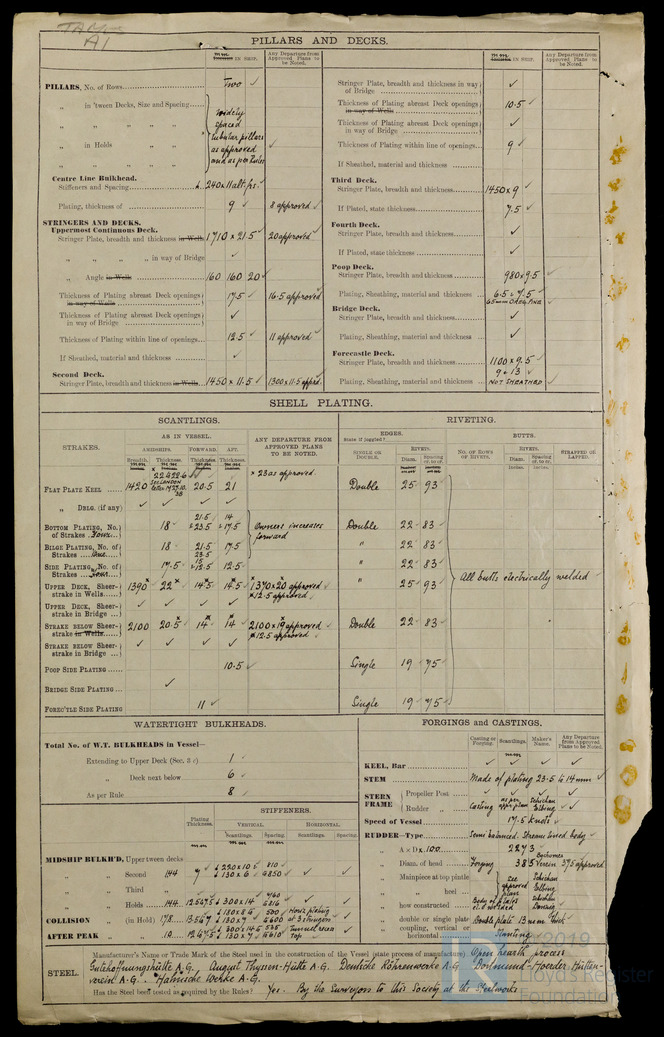 PILLARS AND DECKS.
IN SHIP.
Any Departure from Approved Plans to be Noted.
PILLARS, No. of Rows Two ✓
„ in 'tween Decks, Size and Spacing
widely
spaced
tubular pillars
„ in Holds as approved ✓
and as per Rules
Centre Line Bulkhead.
Stiffeners and Spacing 240 x 11 alt. frs. ✓
Plating, thickness of 9 ✓ 8 approved ✓
STRINGERS AND DECKS.
Uppermost Continuous Deck.
Stringer Plate, breadth and thickness in Wells 1710 x 21.5 ✓ 20 approved ✓
„ „ „ „ in way of Bridge ✓
„ Angle in Wells 160 160 20 ✓
Thickness of Plating abreast Deck openings in way of Wells 17.5 ✓ 16.5 approved
Thickness of Plating abreast Deck openings in way of Bridge ✓
Thickness of Plating within line of openings 12.5 ✓ 11 approved ✓
If Sheathed, material and thickness ✓
Second Deck.
Stringer Plate, breadth and thickness in Wells 1450 x 11.5 ✓ 1300 x 11.5 appd.
IN SHIP.
Any Departure from Approved Plans to be Noted.
Stringer Plate, breadth and thickness in way of Bridge ✓
Thickness of Plating abreast Deck openings in way of Wells 10.5 ✓
Thickness of Plating abreast Deck openings in way of Bridge ✓
Thickness of Plating within line of openings 9 ✓
If Sheathed, material and thickness ✓
Third Deck.
Stringer Plate, breadth and thickness 1450 x 9 ✓
If Plated, state thickness 7.5 ✓
Fourth Deck.
Stringer Plate, breadth and thickness ✓
If Plated, state thickness ✓
Poop Deck.
Stringer Plate, breadth and thickness 980 x 9.5
Plating, Sheathing, material and thickness 6.5 & 7.5 ✓
65 mm Oreg. Pine
Bridge Deck.
Stringer Plate, breadth and thickness ✓
Plating, Sheathing, material and thickness ✓
Forecastle Deck.
Stringer Plate, breadth and thickness 1100 x 9.5 ✓
Plating, Sheathing, material and thickness 9 & 13 ✓
NOT SHEATHED ✓
SHELL PLATING.
SCANTLINGS.
RIVETING.
STRAKES.
AS IN VESSEL.
AMIDSHIPS. FORWARD. AFT.
Breadth. Thickness. Thickness. Thickness.
ANY DEPARTURE FROM APPROVED PLANS TO BE NOTED.
EDGES.
State if joggled?
SINGLE OR DOUBLE.
RIVETS.
Diam. Spacing cr. to cr.
BUTTS.
NO. OF ROWS OF RIVETS.
RIVETS.
Diam. Spacing cr. to cr.
STRAPPED OR LAPPED.
FLAT PLATE KEEL 1420 20.5 21 x 23 as approved. Double 25 93 ✓
„ DBLG. (if any)
BOTTOM PLATING, No. of Strakes Four 18 ✓ 21.5 23.5 14 17.5 Owners increases forward Double 22 83 ✓
BILGE PLATING, No. of Strakes One 18 ✓ 21.5 23.5 17.5 „ 22 83 ✓
SIDE PLATING, No. of Strakes Four 17.5 12.5 12.5 „ 22 83 ✓
UPPER DECK, Sheer-strake in Wells 1390 22 14.5 14.5 1370 x 20 approved x 12.5 approved „ 25 93 ✓ All butts electrically welded ✓
UPPER DECK, Sheer-strake in Bridge ✓ ✓ ✓ ✓
STRAKE BELOW Sheer-strake in Wells 2100 20.5 14 14 2100 x 19 approved x 12.5 approved Double 22 83 ✓
STRAKE BELOW Sheer-strake in Bridge ✓ ✓ ✓ ✓
POOP SIDE PLATING 10.5 ✓ Single 19 75 ✓
BRIDGE SIDE PLATING ✓
FOREC'TLE SIDE PLATING 11 ✓ Single 19 75 ✓
WATERTIGHT BULKHEADS.
Total No. of W.T. BULKHEADS in Vessel—
Extending to Upper Deck (Sec. 3 c) 1 ✓
„ Deck next below 6 ✓
As per Rule 8 ✓
Plating Thickness.
STIFFENERS.
VERTICAL. HORIZONTAL.
Scantlings. Spacing. Scantlings. Spacing.
MIDSHIP BULKH'D, Upper tween decks
„ „ Second 144 9 220 x 10.5 130 x 6 810 6850 ✓ ✓
„ „ Third „
„ „ Holds 144 300 x 14 760 6816 ✓ ✓
COLLISION „ (in Hold) 178 180 x 8.5 130 x 7 500 6600 Horiz. plating at 3 stringers
AFTER PEAK „ „ 12 Tunnel recess top ✓
FORGINGS and CASTINGS.
Casting or Forging. Scantlings. Maker's Name. Any Departure from Approved Plans to be Noted.
KEEL, Bar ✓ ✓ ✓ ✓
STEM Made of plating 23.5 to 14 mm ✓
STERN FRAME Propeller Post
Rudder „ Casting as per appr. plan Schichau Elbing ✓ ✓
Speed of Vessel 17.5 knots ✓
RUDDER—Type Semi balanced. Stream lined body ✓
„ A x D x 100 2273 ✓
„ Diam. of head Forging 385 Bochumer Verein 375 approved
„ Mainpiece at top pintle See approved plan Schichau Elbing
„ „ heel
„ how constructed Schichau Danzig
„ double or single plate Double plate 13 mm thick ✓
„ coupling, vertical or horizontal Slanting
STEEL.
Manufacturer's Name or Trade Mark of the Steel used in the construction of the Vessel (state process of manufacture) Open hearth process
Gutehoffnungshütte A.G. August Thyssen-Hütte A.G. Deutsche Röhrenwerke A.G. Dortmund-Hoerder Hütten-
verein A.G.
Has the Steel been tested as required by the Rules? Yes. By the Surveyors to this Society at the Steelworks
2019
Lloyd's Register
Foundation